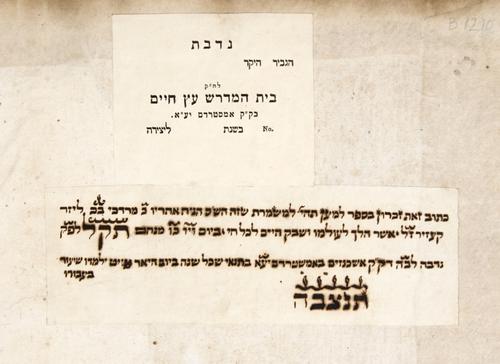 B 1210
נדבת
הגביר היקר
לח״ק
בית המדרש עץ חיים
בק״ק אמסטרדם יע״א.
No. בשנת ליצירה
כתוב זאת זכרון בספר למען תהי׳ למשמרת שזה הש״ס הניח אחריו מרדכי ב״כ ליזר
קעזיר ז״ל אשר הלך לעולמו ושבק חיים לכל חי ביום מנחם תקל לפ״ק
נדבה דק״ק אשכנזים באמשטרדם יע״א בתנאי שכל שנה ביום היאר צייט ילמדו שיעור
בעבורו
תנצבה